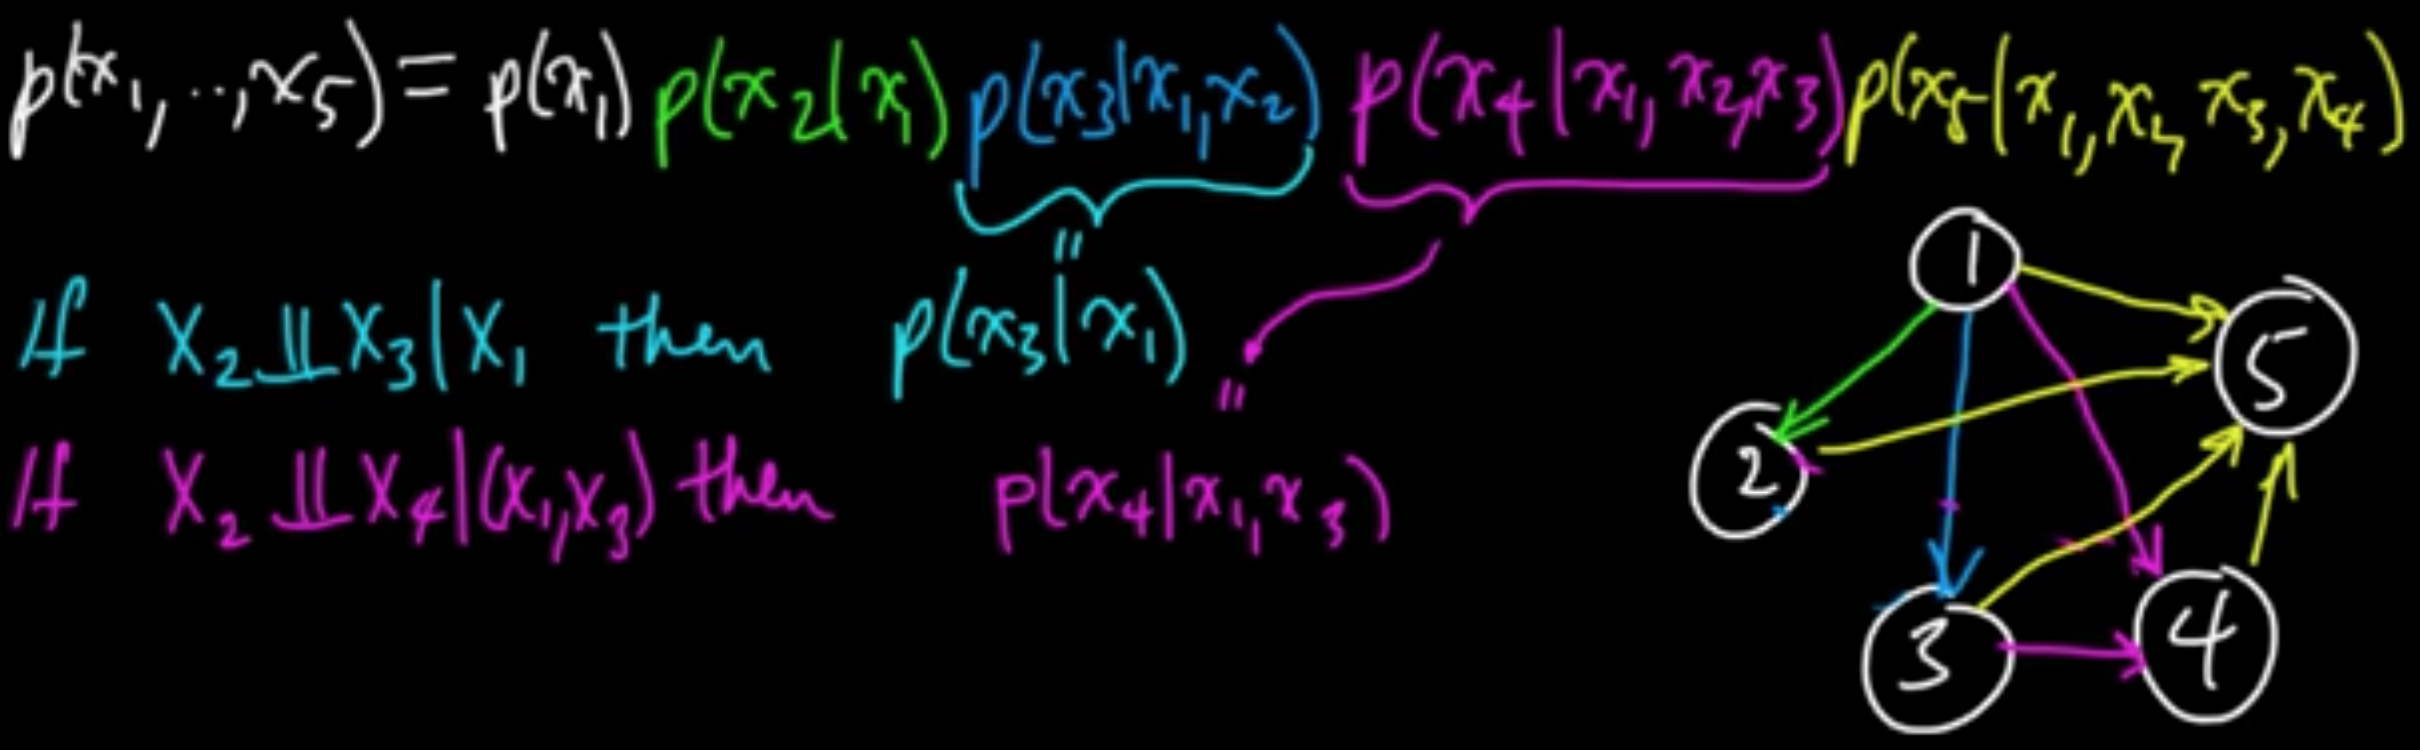 p(x₁,..,x₅) = p(x₁) p(x₂|x₁) p(x₃|x₁,x₂) p(x₄|x₁,x₂,x₃) p(x₅|x₁,x₂,x₃,x₄)
"
If X₂ ⫫ X₃ | X₁ then p(x₃|x₁)
"
If X₂ ⫫ X₄ | (X₁,X₃) then p(x₄|x₁,x₃)
1
5
2
3
4